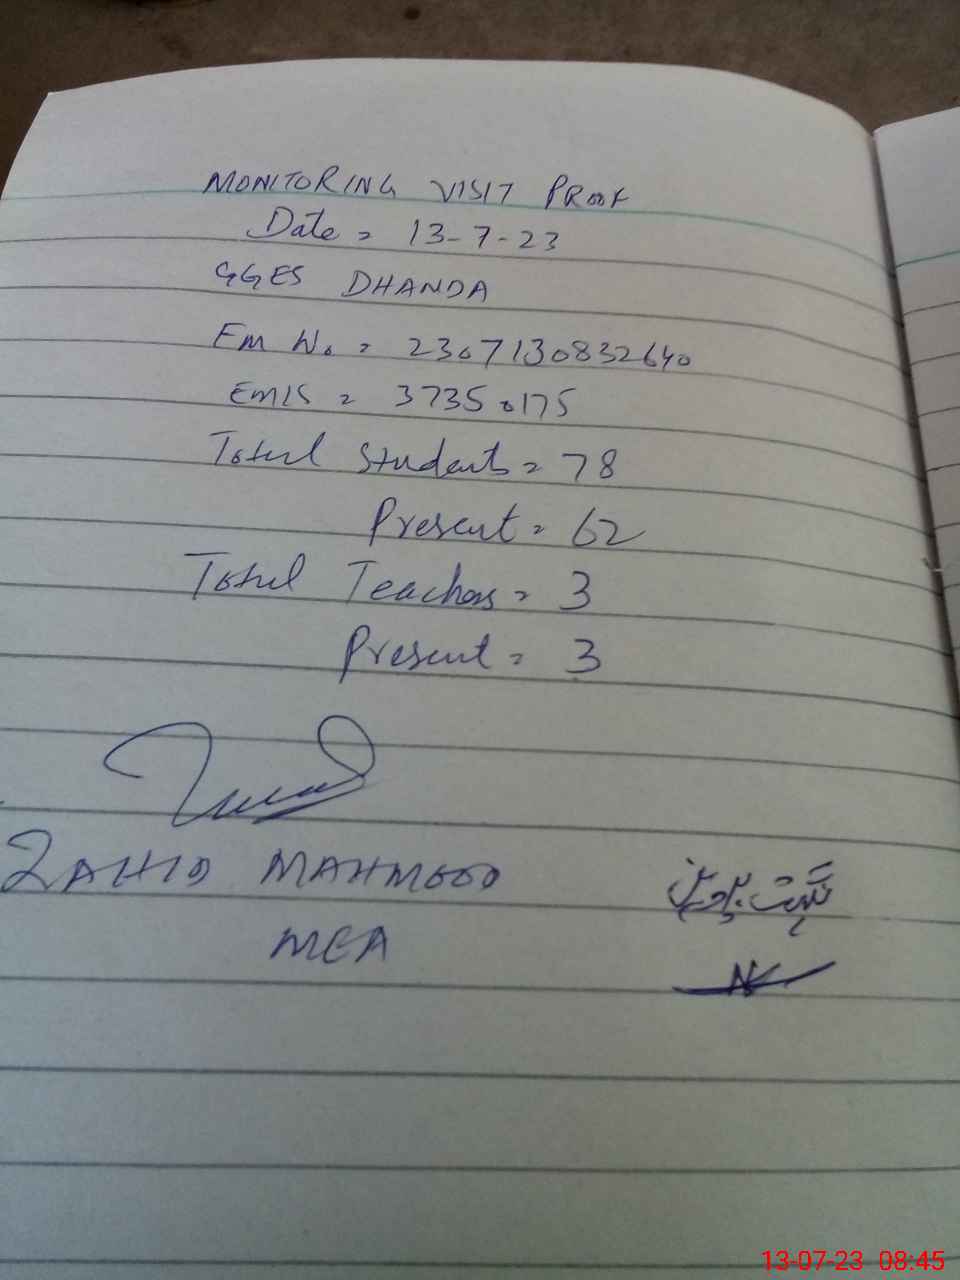 MONITORING VISIT PROOF
Date = 13-7-23
GGES DHANDA
Em No. = 2307130832640
EMIS = 37350175
Total Students = 78
Present = 62
Total Teachers = 3
Present = 3
ZAHID MAHMOOD
MEA
13-07-23 08:45